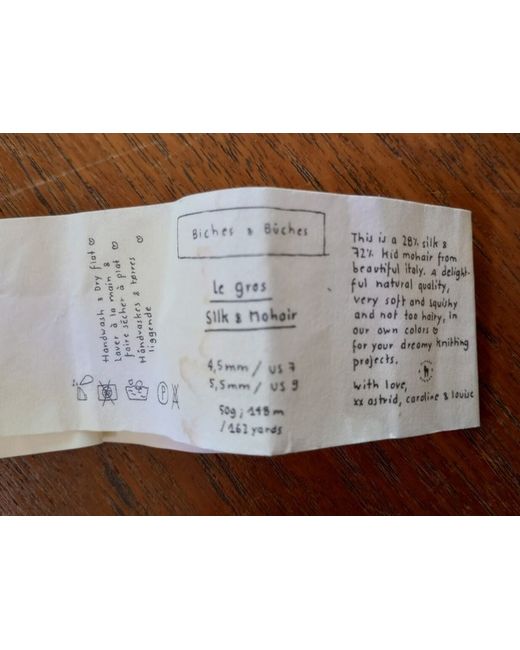 Handwash & Dry flat ♡
Laver à la main &
faire sécher à plat ♡
Håndvaskes & tørres ♡
liggende
P
Biches & Bûches
Le gros
Silk & Mohair
4,5mm / US 7
5,5mm / US 9
50g ; 148 m
/ 162 yards
This is a 28% silk &
72% kid mohair from
beautiful italy. a delight-
ful natural quality,
very soft and squishy
and not too hairy, in
our own colors ♡
for your dreamy knitting
projects.
with love,
xx astrid, caroline & louise